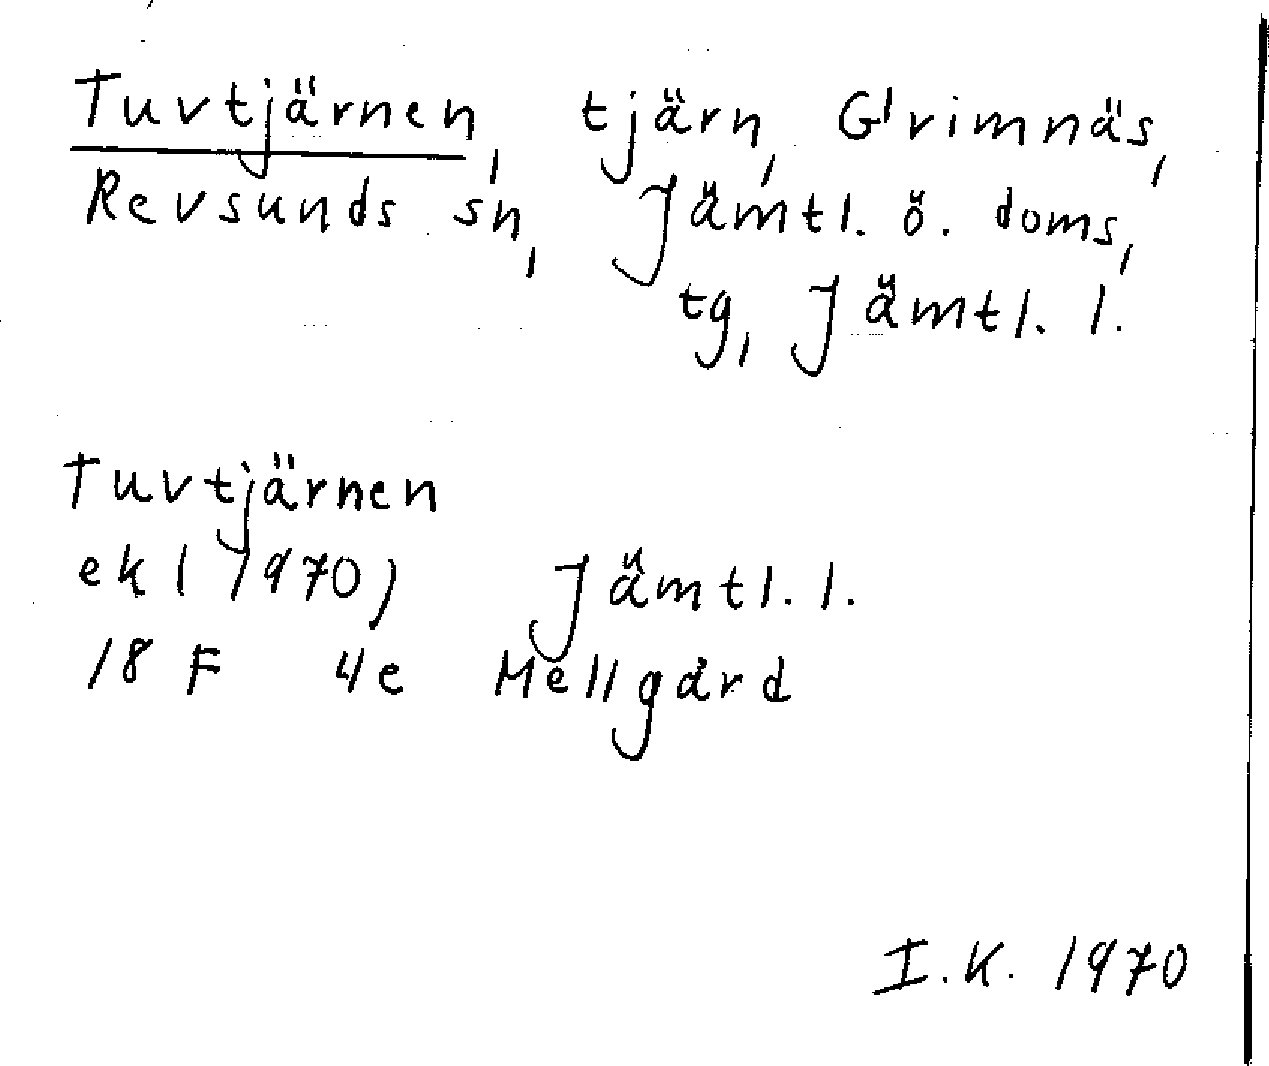 Tuvtjärnen, tjärn, Grimnäs,
Revsunds sn, Jämtl. ö. doms,
tg, Jämtl. l.
Tuvtjärnen
ek (1970) Jämtl. l.
18 F 4e Mellgård
I.K. 1970